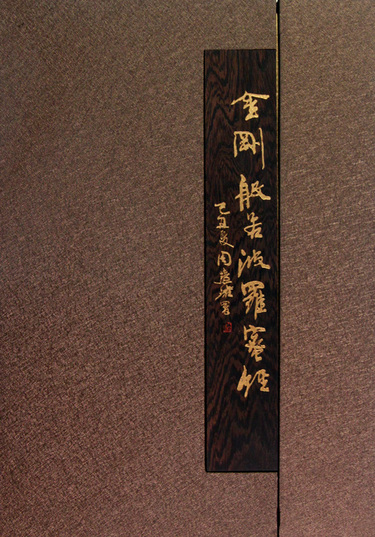 金剛般若波羅蜜經
己丑夏周慧珺署